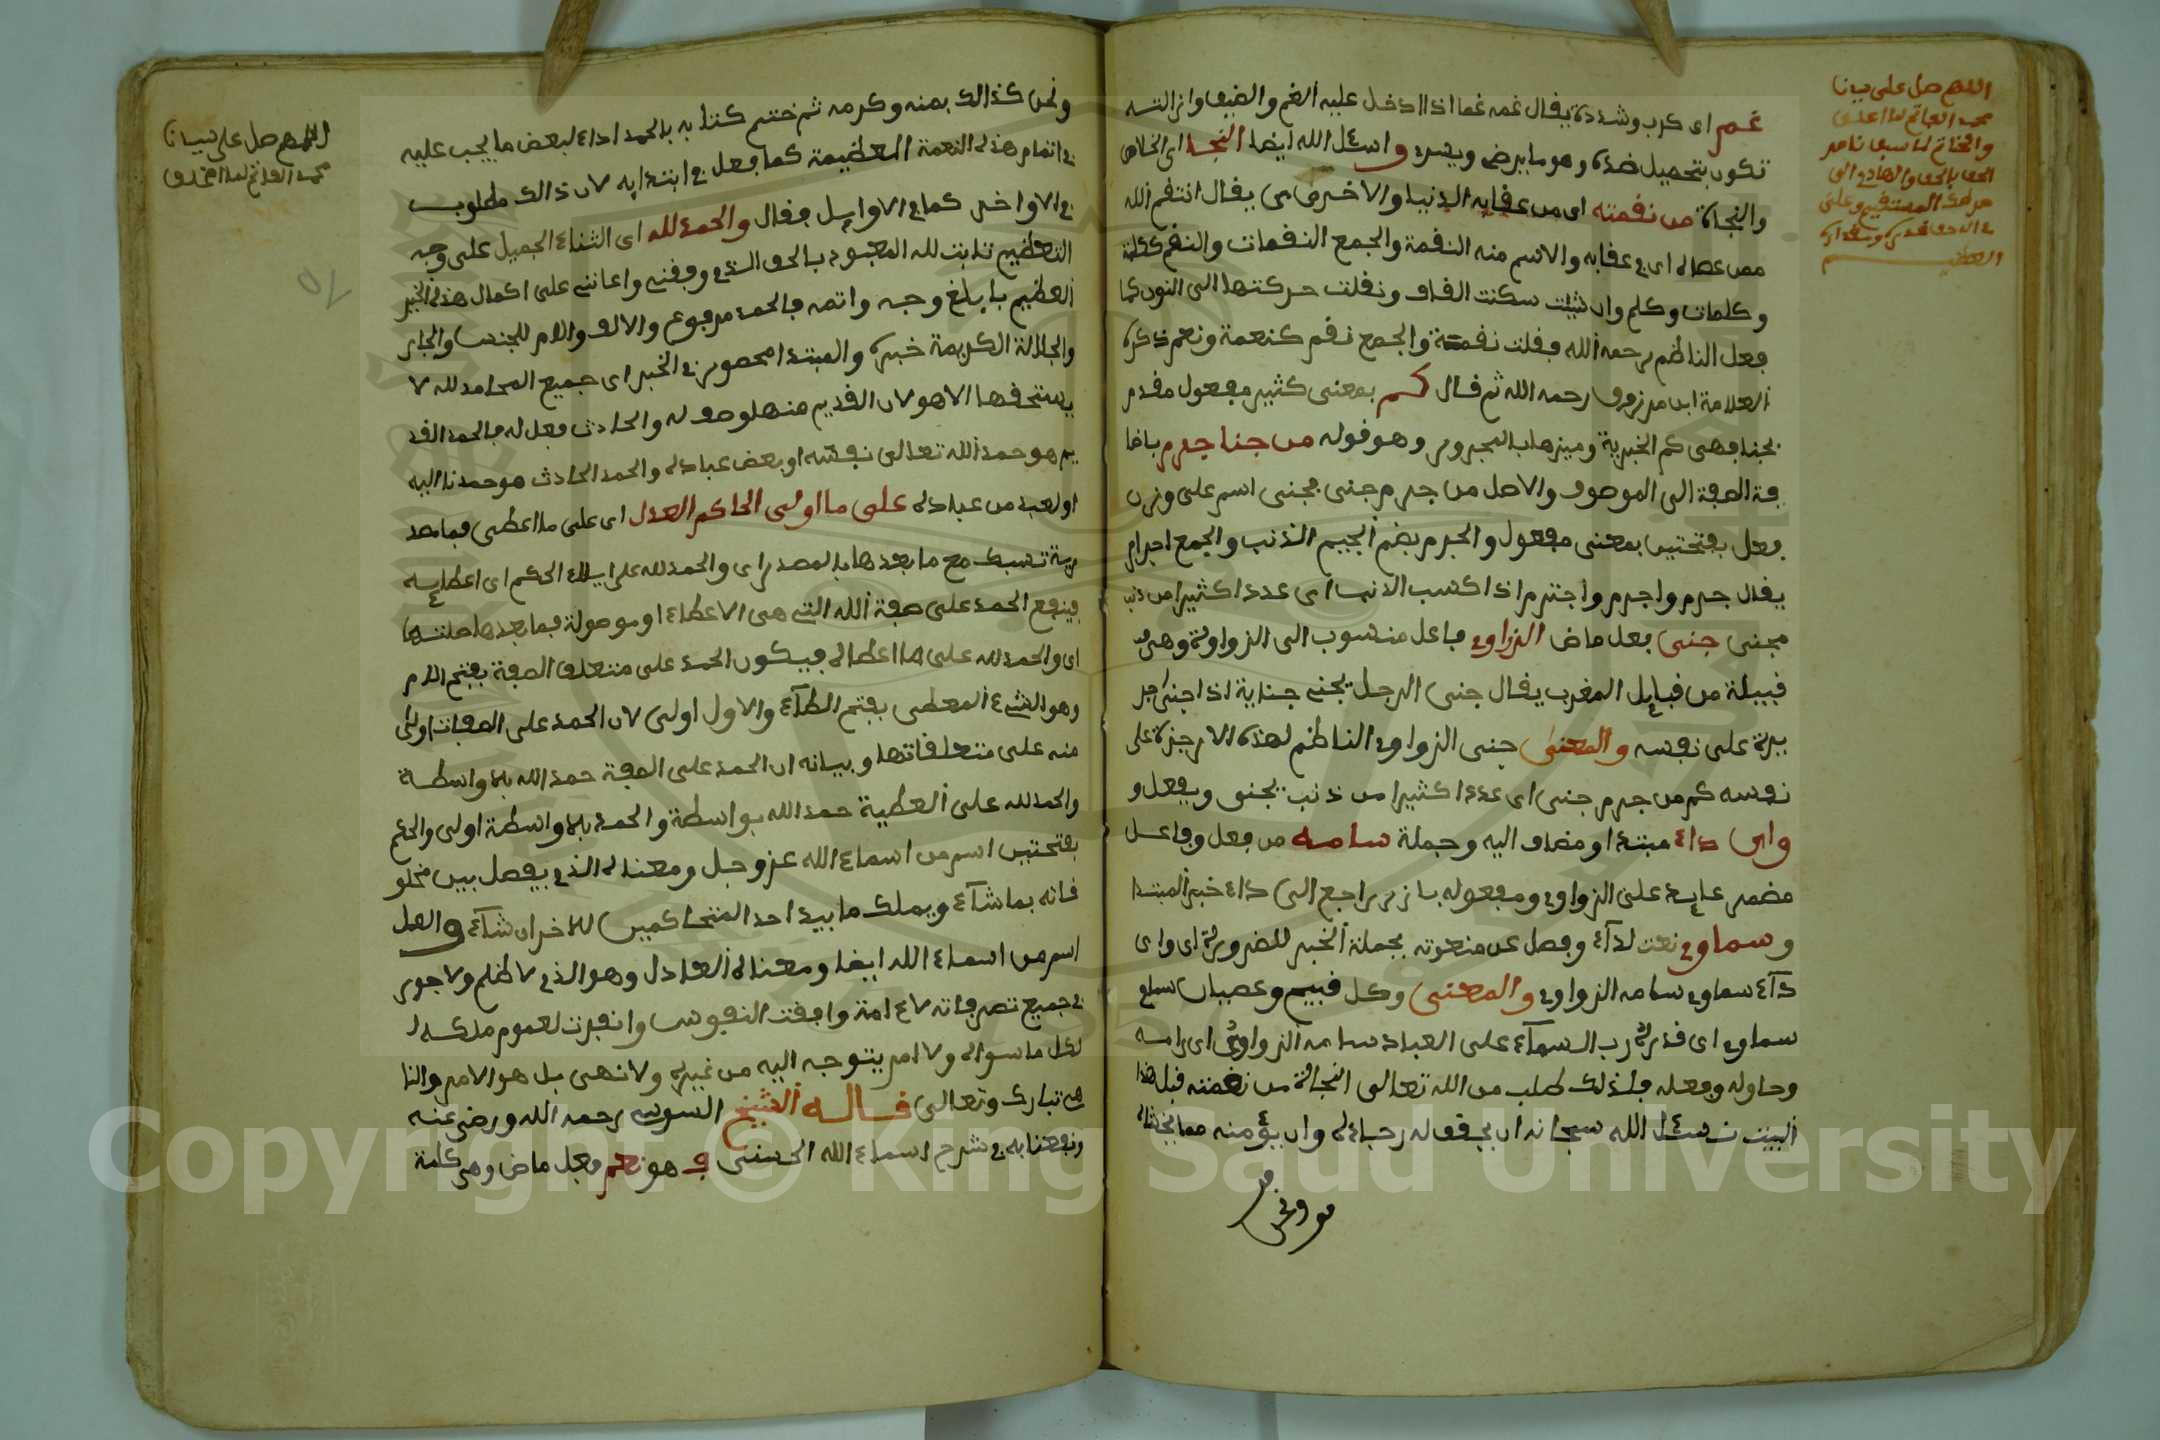 غم اى كرب وشدة يقال غمه غما اذا ادخل عليه الغم والضيق وازالته
تكون بتحصيل ضده وهو ما يرضى ويسره واسئل الله ايضا النجا اى الخلاص
والنجاة من نقمته اى من عقابه الدنيا والاخرة يقال انتقم الله
ممن عصاه اى عاقبه والاسم منه النقمة والجمع النقمات والنقم ككلمة
وكلمات وكلم وان شئت سكنت القاف ونقلت حركتها الى النون كما
فعل الناظم رحمه الله فقلت نقمة والجمع نقم كنعمة ونعم ذكره
العلامة ابن مرزوق رحمه الله ثم قال كم بمعنى كثير مفعول مقدم
بجنا فهى كم الخبرية وميزها بالمجرور وهو قوله من جنا جرم باضا
فة الصفة الى الموصوف والاصل من جرم جنى فجنى اسم على وزن
فعل بفتحتين بمعنى مفعول والجرم بضم الجيم الذنب والجمع اجرام
يقال جرم واجرم واجترم اذا كسب الاثم اى عددا كثيرا من ذنب
مجنى جنى فعل ماض الزواوى فاعل منسوب الى الزواوة وهى
قبيلة من قبايل المغرب يقال جنى الرجل يجنى جناية اذا اجنى جر
يرة على نفسه والمعنى جنى الزواوى الناظم لهذه الارجزة على
نفسه كم من جرم جنى اى عددا كثيرا من ذنب يجنى ويفعل و
واى داء مبتدا ومضاف اليه وجملة سامه من فعل وفاعل
مضمر عايد على الزواوى ومفعوله بارز راجع الى داء خبر المبتدا
وسماوى نعت لداء وفصل عن منعوته بجملة الخبر للضرورة اى واى
داء سماوى سامه الزواوى والمعنى وكل قبيح وعصيان
سماوى اى قدره رب السماء على العباد سامه الزواوى اى رامه
وحاوله وفعله فلذلك طلب من الله تعالى النجاة من نقمته قبل هذا
البيت نسئل الله سبحانه ان يحقق له رجاءه وان يؤمنه مما يخشاه
ونحن
ونحن كذالك بمنه وكرمه ثم ختم كتابه بالحمد اداء لبعض ما يجب عليه
فى اتمام هذه النعمة العظيمة كما فعل فى ابتدايه لان ذالك مطلوب
فى الاواخر كما فى الاوايل فقال والحمد لله اى الثناء الجميل على وجه
التعظيم ثابت لله المعبود بالحق الذى وفقنى واعاننى على اكمال هذه الخير
العظيم بابلغ وجه واتمه فالحمد مرفوع والالف والام للجنس والجار
والجلالة الكريمة خبره والمبتدا محصور فى الخبر اى جميع المحامد لله لا
يستحقها الا هو لان القديم منها وصف له والحادث فعل له فالحمد القد
يم هو حمد الله تعالى نفسه او بعض عباده والحمد الحادث هو حمدنا اليه
او لعبد من عباده على ما اولى الحاكم العدل اى على ما اعطى فما مصد
رية تسبك مع ما بعدها بالمصدر اى والحمد لله على ايلاء الحكم اى اعطايه
فيقع الحمد على صفة الله التى هى الاعطاء او موصولة فما بعدها صلتها
اى والحمد لله على ما اعطاه فيكون الحمد على متعلق الصفة بفتح اللام
وهو الشىء المعطى بفتح الطاء والاول اولى لان الحمد على الصفات اولى
منه على متعلقاتها وبيانه ان الحمد على الصفة حمد الله بلا واسطة
والحمد لله على العطية حمد الله بواسطة والحمد بلا واسطة اولى والحكم
بفتحتين اسم من اسماء الله عز وجل ومعناه الذى يفصل بين مخلو
قاته بما شاء ويملك ما بيد احد المتحاكمين للاخر ان شاء والعدل
اسم من اسماء الله ايضا ومعناه العادل وهو الذى لا ظلم ولا جور
فى جميع تصرفاته وافقت النفوس وانفردت لعموم ملكه
لكل ما سواه ولا امر يتوجه اليه من غيره ولا نهى بل هو الامر والنا
هى تبارك وتعالى قاله الشيخ السنوسى رحمه الله ورضى عنه
ونفعنا به فى شرح اسماء الله الحسنى هو نعم فعل ماض وهى كلمة
اللهم صل على سيدنا
محمد الفاتح لما اغلق
والخاتم لما سبق ناصر
الحق بالحق والهادى الى
صراطك المستقيم وعلى
اله حق قدره ومقداره
العظيم
اللهم صل على سيدنا
محمد الفاتح لما اغلق
Copyright © King Saud University